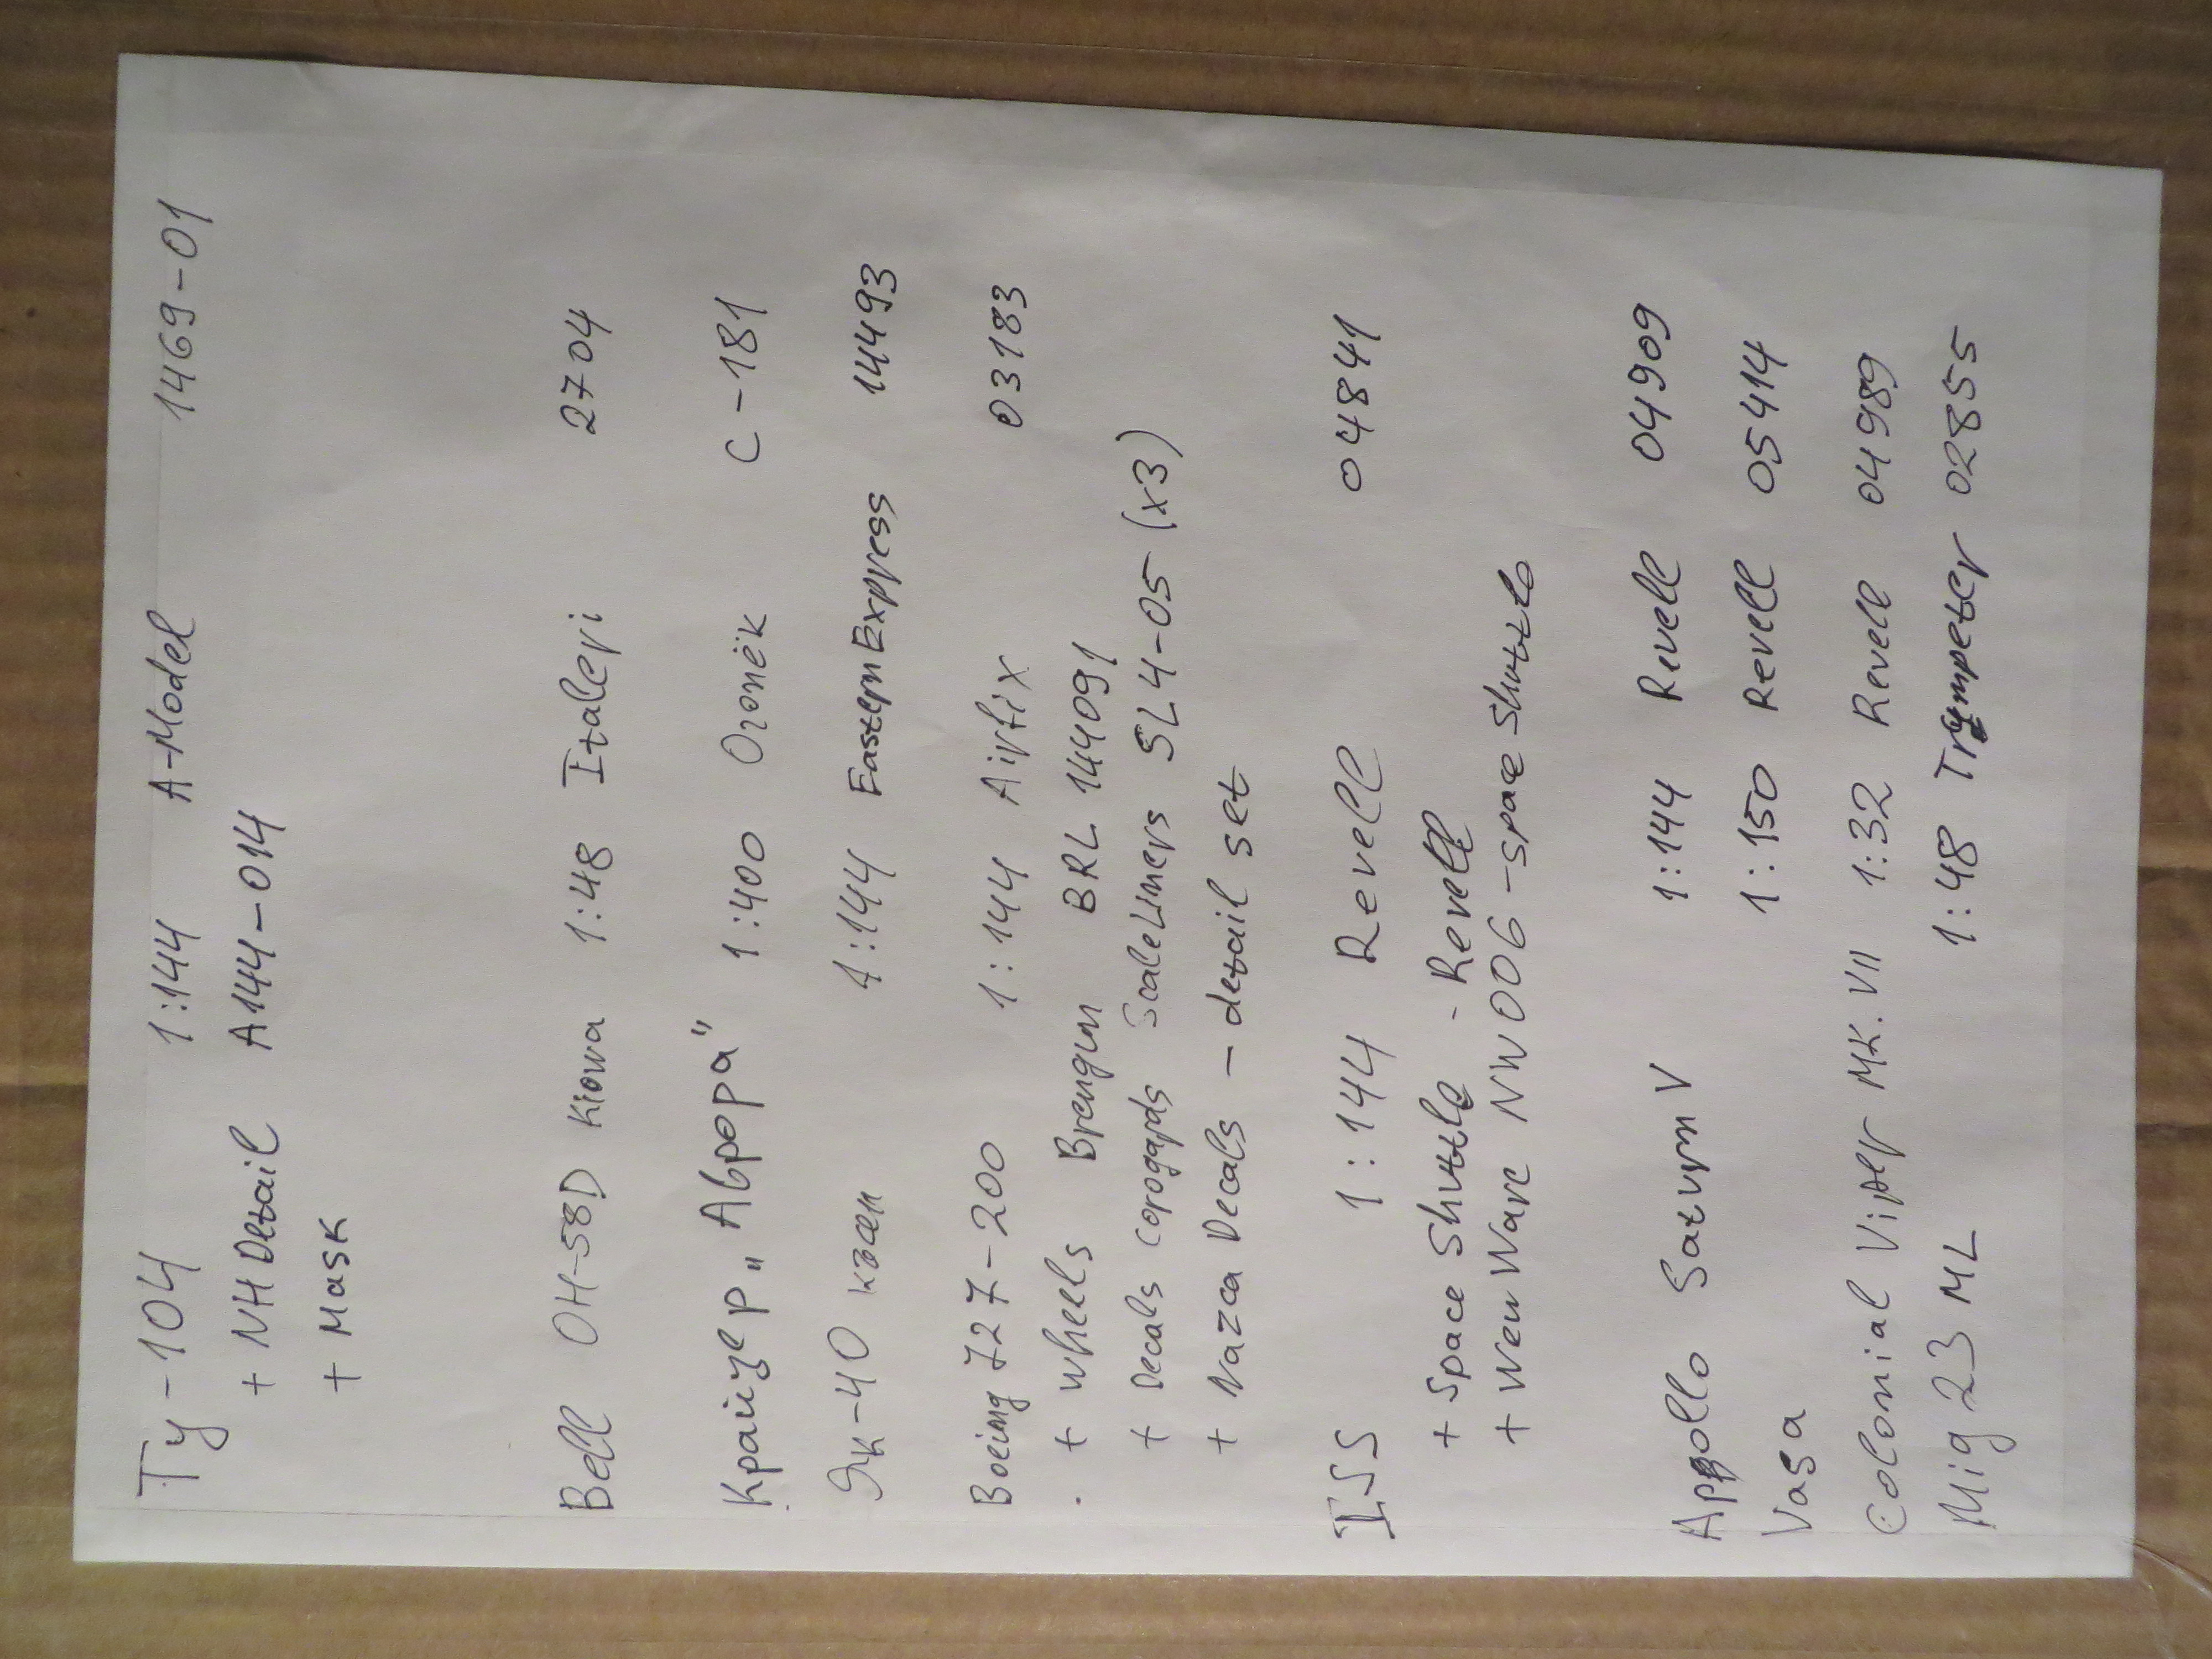 Ту-104 1:144 A-Model 1469-01
+ NH Detail A144-014
+ Mask
Bell OH-58D Kiowa 1:48 Italeri 2704
Крайзер „Аврора" 1:400 Огонёк С-181
Як-40 1:144 Eastern Express 14493
Boeing 727-200 1:144 Airfix 03183
+ wheels Brengun BRL 144091
+ Decals ScaleLiners SL4-05 (x3)
+ Nazca Decals - detail set
ISS 1:144 Revell 04841
+ Space Shuttle - Revell
+ New Ware NW006 - space Shuttle
Appollo Saturn V 1:144 Revell 04909
Vasa 1:150 Revell 05414
Colonial Viper MK. VII 1:32 Revell 04989
Mig 23 ML 1:48 02855